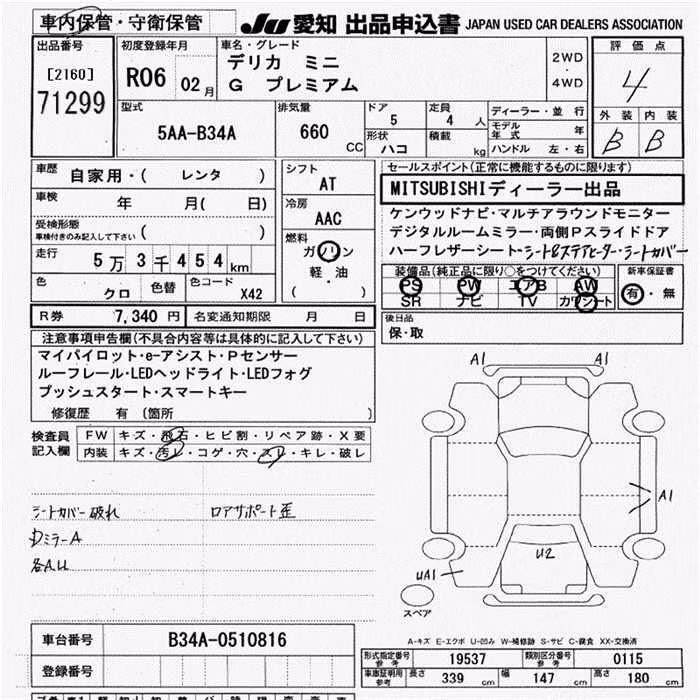 車内保管・守衛保管 JU 愛知 出品申込書 JAPAN USED CAR DEALERS ASSOCIATION
出品番号 [2160] 71299
初度登録年月 R06 02月
車名・グレード デリカ ミニ G プレミアム
2WD・4WD
評価点 4
外装 B 内装 B
型式 5AA-B34A
排気量 660 CC
ドア 5
定員 4 人
形状 ハコ
積載 kg
ディーラー・並行
モデル年式 年
ハンドル 左・右
車歴 自家用・( レンタ )
車検 年 月( 日)
受検形態 車検付きのみ記入して下さい ( )
走行 5万3千454km
色 クロ 色替 色コード X42
シフト AT
冷房 AAC
燃料 ガソリン 軽・油 ( )
セールスポイント(正常に機能するものに限ります)
MITSUBISHIディーラー出品
ケンウッドナビ・マルチアラウンドモニター
デジタルルームミラー・両側Pスライドドア
ハーフレザーシート・シート&ステアヒーター・シートカバー
装備品(純正品に限り○をつけてください)
PS PW エアB AW
SR ナビ TV カワシート
新車保証書 有・無
R券 7,340円 名変通知期限 月 日
後日品
保・取
注意事項申告欄(不具合内容等は具体的に記入して下さい)
マイパイロット・e-アシスト・Pセンサー
ルーフレール・LEDヘッドライト・LEDフォグ
プッシュスタート・スマートキー
修復歴 有 (箇所 )
検査員記入欄
FW キズ・飛石・ヒビ割・リペア跡・X要
内装 キズ・汚レ・コゲ・穴・スレ・キレ・破レ
シートカバー破れ ロアサポート歪
DミラーA
各A.U
A1 A1
A1
U2
UA1
スペア
A-キズ E-エクボ U-凹み W-補修跡 S-サビ C-腐食 XX-交換済
車台番号 B34A-0510816
登録番号
形式指定番号 参考 19537 類別区分番号 参考 0115
車庫証明用 参考 長さ 339 cm 幅 147 cm 高さ 180 cm